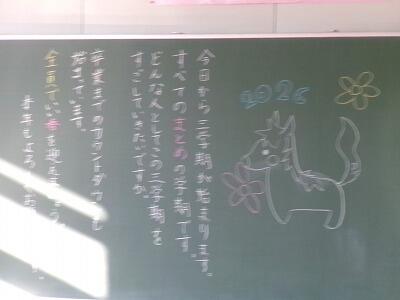 2026
今日から三学期が始まります。
すべてのまとめの学期です。
どんな人としてこの三学期を
すごしていきたいですか。
卒業までのカウントダウンも
始まっています。
全員でいい春を迎えましょう
今年もよろしくお願いします。